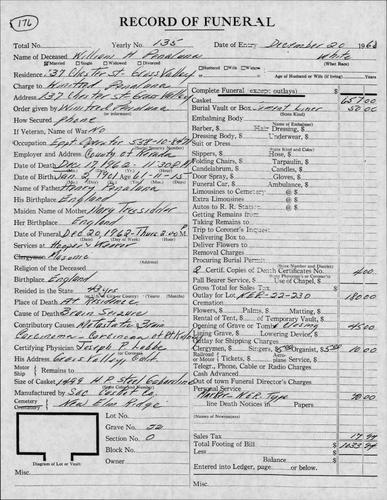 176
RECORD OF FUNERAL
Total No. Yearly No. 135 Date of Entry December 20 196
Name of Deceased William H Penaluna White
Married Single Widowed Divorced Husband Wife Widow (What Race)
Residence 137 Chester St. Grass Valley Age of Husband or Wife (if living) Years
Charge to Winifred Penaluna
Address 137 Chester St Grass Valley
Order given by Winifred Penaluna
(or informant)
How Secured phone
If Veteran, Name of War No
Occupation Eqpt Operator
(Social Security Number)
Employer and Address County of Nevada
Date of Death Dec 17, 1962 11:30 P.M.
Date of Birth Jan 2, 1901 Age 61-11-15
Name of Father Henry Penaluna
His Birthplace England
Maiden Name of Mother Mary Tresidder
Her Birthplace England
Date of Funeral Dec 20, 1962-Thurs 2:00 PM
Services at Hooper & Weaver
Clergyman Masonic
(Address)
Religion of the Deceased
Birthplace England
Resided in the 43 yrs
Place of Death At Residence
Cause of Death Brain Seizure
Contributory Causes Metastatic Brain
Carcinoma - Carcinoma of Rt Kidney
Certifying Physician Joseph P. Noble
His Address Grass Valley, Calif.
Motor
Ship Remains to
Size of Casket
Manufactured by Sac Casket Co.
Cemetery
Crematory New Elm Ridge
Lot No.
Grave No. 22
Section No. O
Block No.
Owner
Diagram of Lot or Vault
Misc.
Complete Funeral (except outlays) $
Casket 657.00
Burial Vault or Box Cement Liner 50.00
Embalming Body
(State Kind)
(Name of Embalmer)
Barber, $ Hair Dressing, $
Dressing Body, $ Underwear, $
Suit or Dress
(State Kind and Color)
Slippers, $ Hose, $
Folding Chairs, $ Tarpaulin, $
Candelabrum, $ Candles, $
Door Spray, $ Gloves, $
Funeral Car, $ Ambulance, $
Limousines to Cemetery @ $
Extra Limousines @ $
Autos to R. R. Station @ $
Getting Remains from
Taking Remains to
Trip to Coroner's Inquest
Delivering Box to
Deliver Flowers to
Removal Charges
Procuring Burial Permit
(State Number and District)
2 Certif. Copies of Death Certificates No. 4.00
Pall Bearer Service, $ Use of Chapel, $
Gross Total for Sales Tax $
Outlay for Lot NER-22-230 180.00
Cremation
Flowers, $ Palms, $ Matting, $
Rental of Tent, $ of Temporary Vault, $
Opening of Grave or Tomb closing 45.00
Lining Grave, $ Lowering Device, $
Outlay for Shipping Charges
Clergymen, $ Singers, $5.00 Organist, $5.00 10.00
Telegr., Phone, Cable or Radio Charges
Cash Advanced
Out of town Funeral Director's Charges
Personal Service
Marker-N.E.R. Type 70.00
line Death Notices in Papers
(Names of Newspapers)
Sales Tax 17.
Total Footing of Bill $
Less $
Balance $
Entered into Ledger, page or below.
Misc.